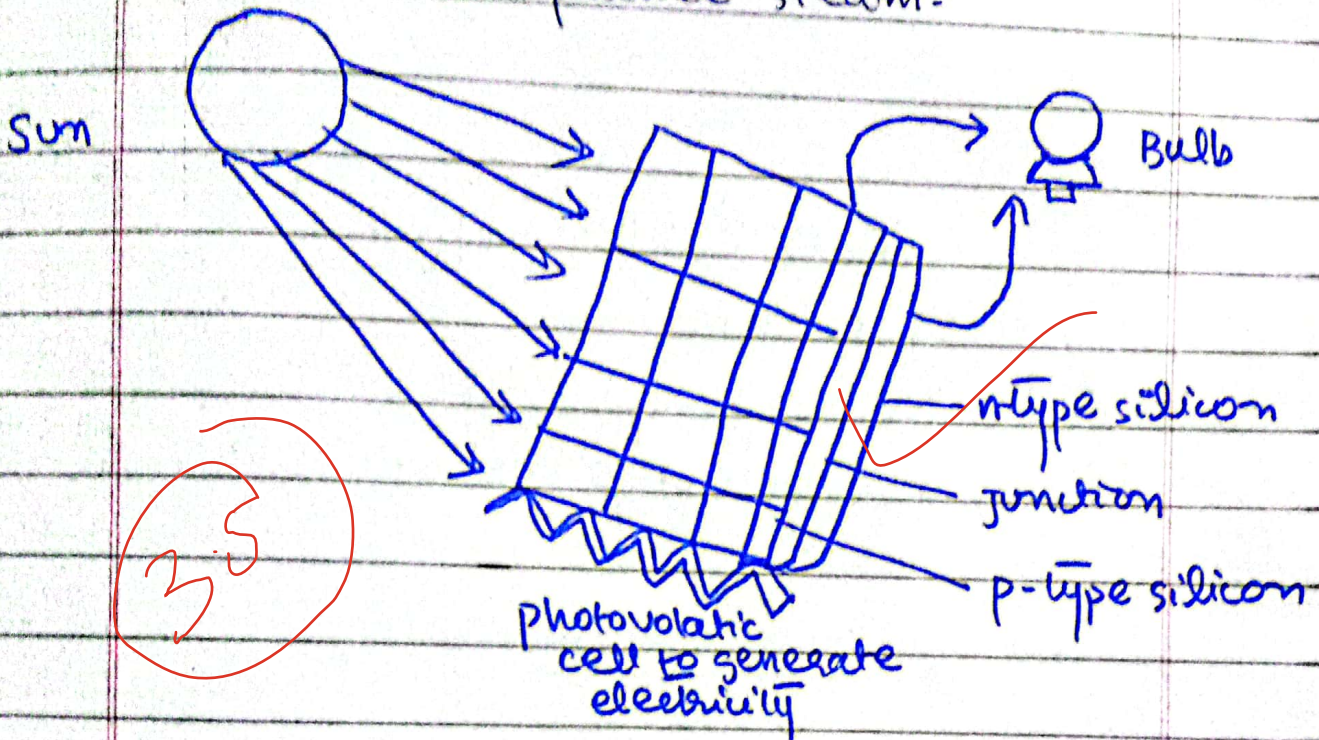 steam.
Sun
Bulb
n-type silicon
junction
p-type silicon
photovolatic
cell to generate
electricity
3.5